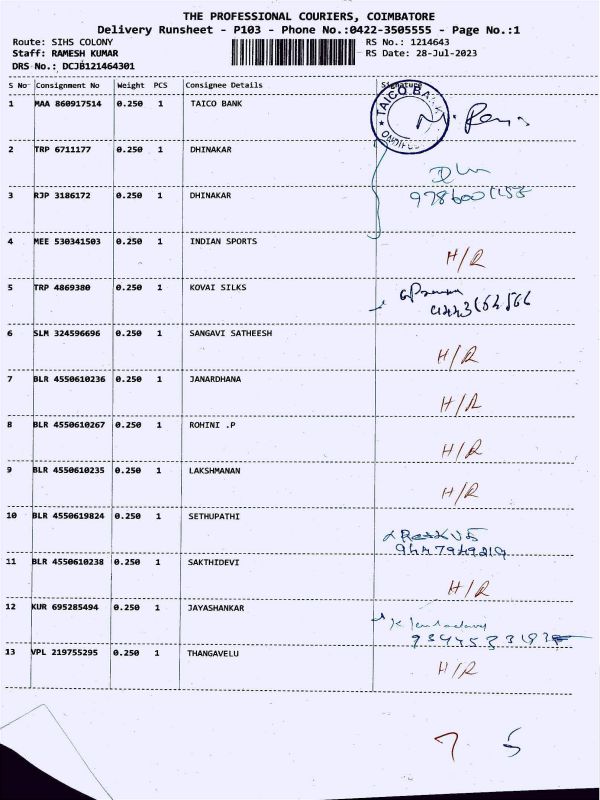 THE PROFESSIONAL COURIERS, COIMBATORE
Delivery Runsheet - P103 - Phone No.:0422-3505555 - Page No.:1
Route: SIHS COLONY RS No.: 1214643
Staff: RAMESH KUMAR RS Date: 28-Jul-2023
DRS No.: DCJB121464301
S No Consignment No Weight PCS Consignee Details Signature
1 MAA 860917514 0.250 1 TAICO BANK
TAICO BANK
2 TRP 6711177 0.250 1 DHINAKAR
3 RJP 3186172 0.250 1 DHINAKAR
4 MEE 530341503 0.250 1 INDIAN SPORTS
H/R
5 TRP 4869380 0.250 1 KOVAI SILKS
6 SLM 324596696 0.250 1 SANGAVI SATHEESH
H/R
7 BLR 4550610236 0.250 1 JANARDHANA
H/R
8 BLR 4550610267 0.250 1 ROHINI .P
H/R
9 BLR 4550610235 0.250 1 LAKSHMANAN
H/R
10 BLR 4550619824 0.250 1 SETHUPATHI
11 BLR 4550610238 0.250 1 SAKTHIDEVI
H/R
12 KUR 695285494 0.250 1 JAYASHANKAR
13 VPL 219755295 0.250 1 THANGAVELU
H/R
7 5